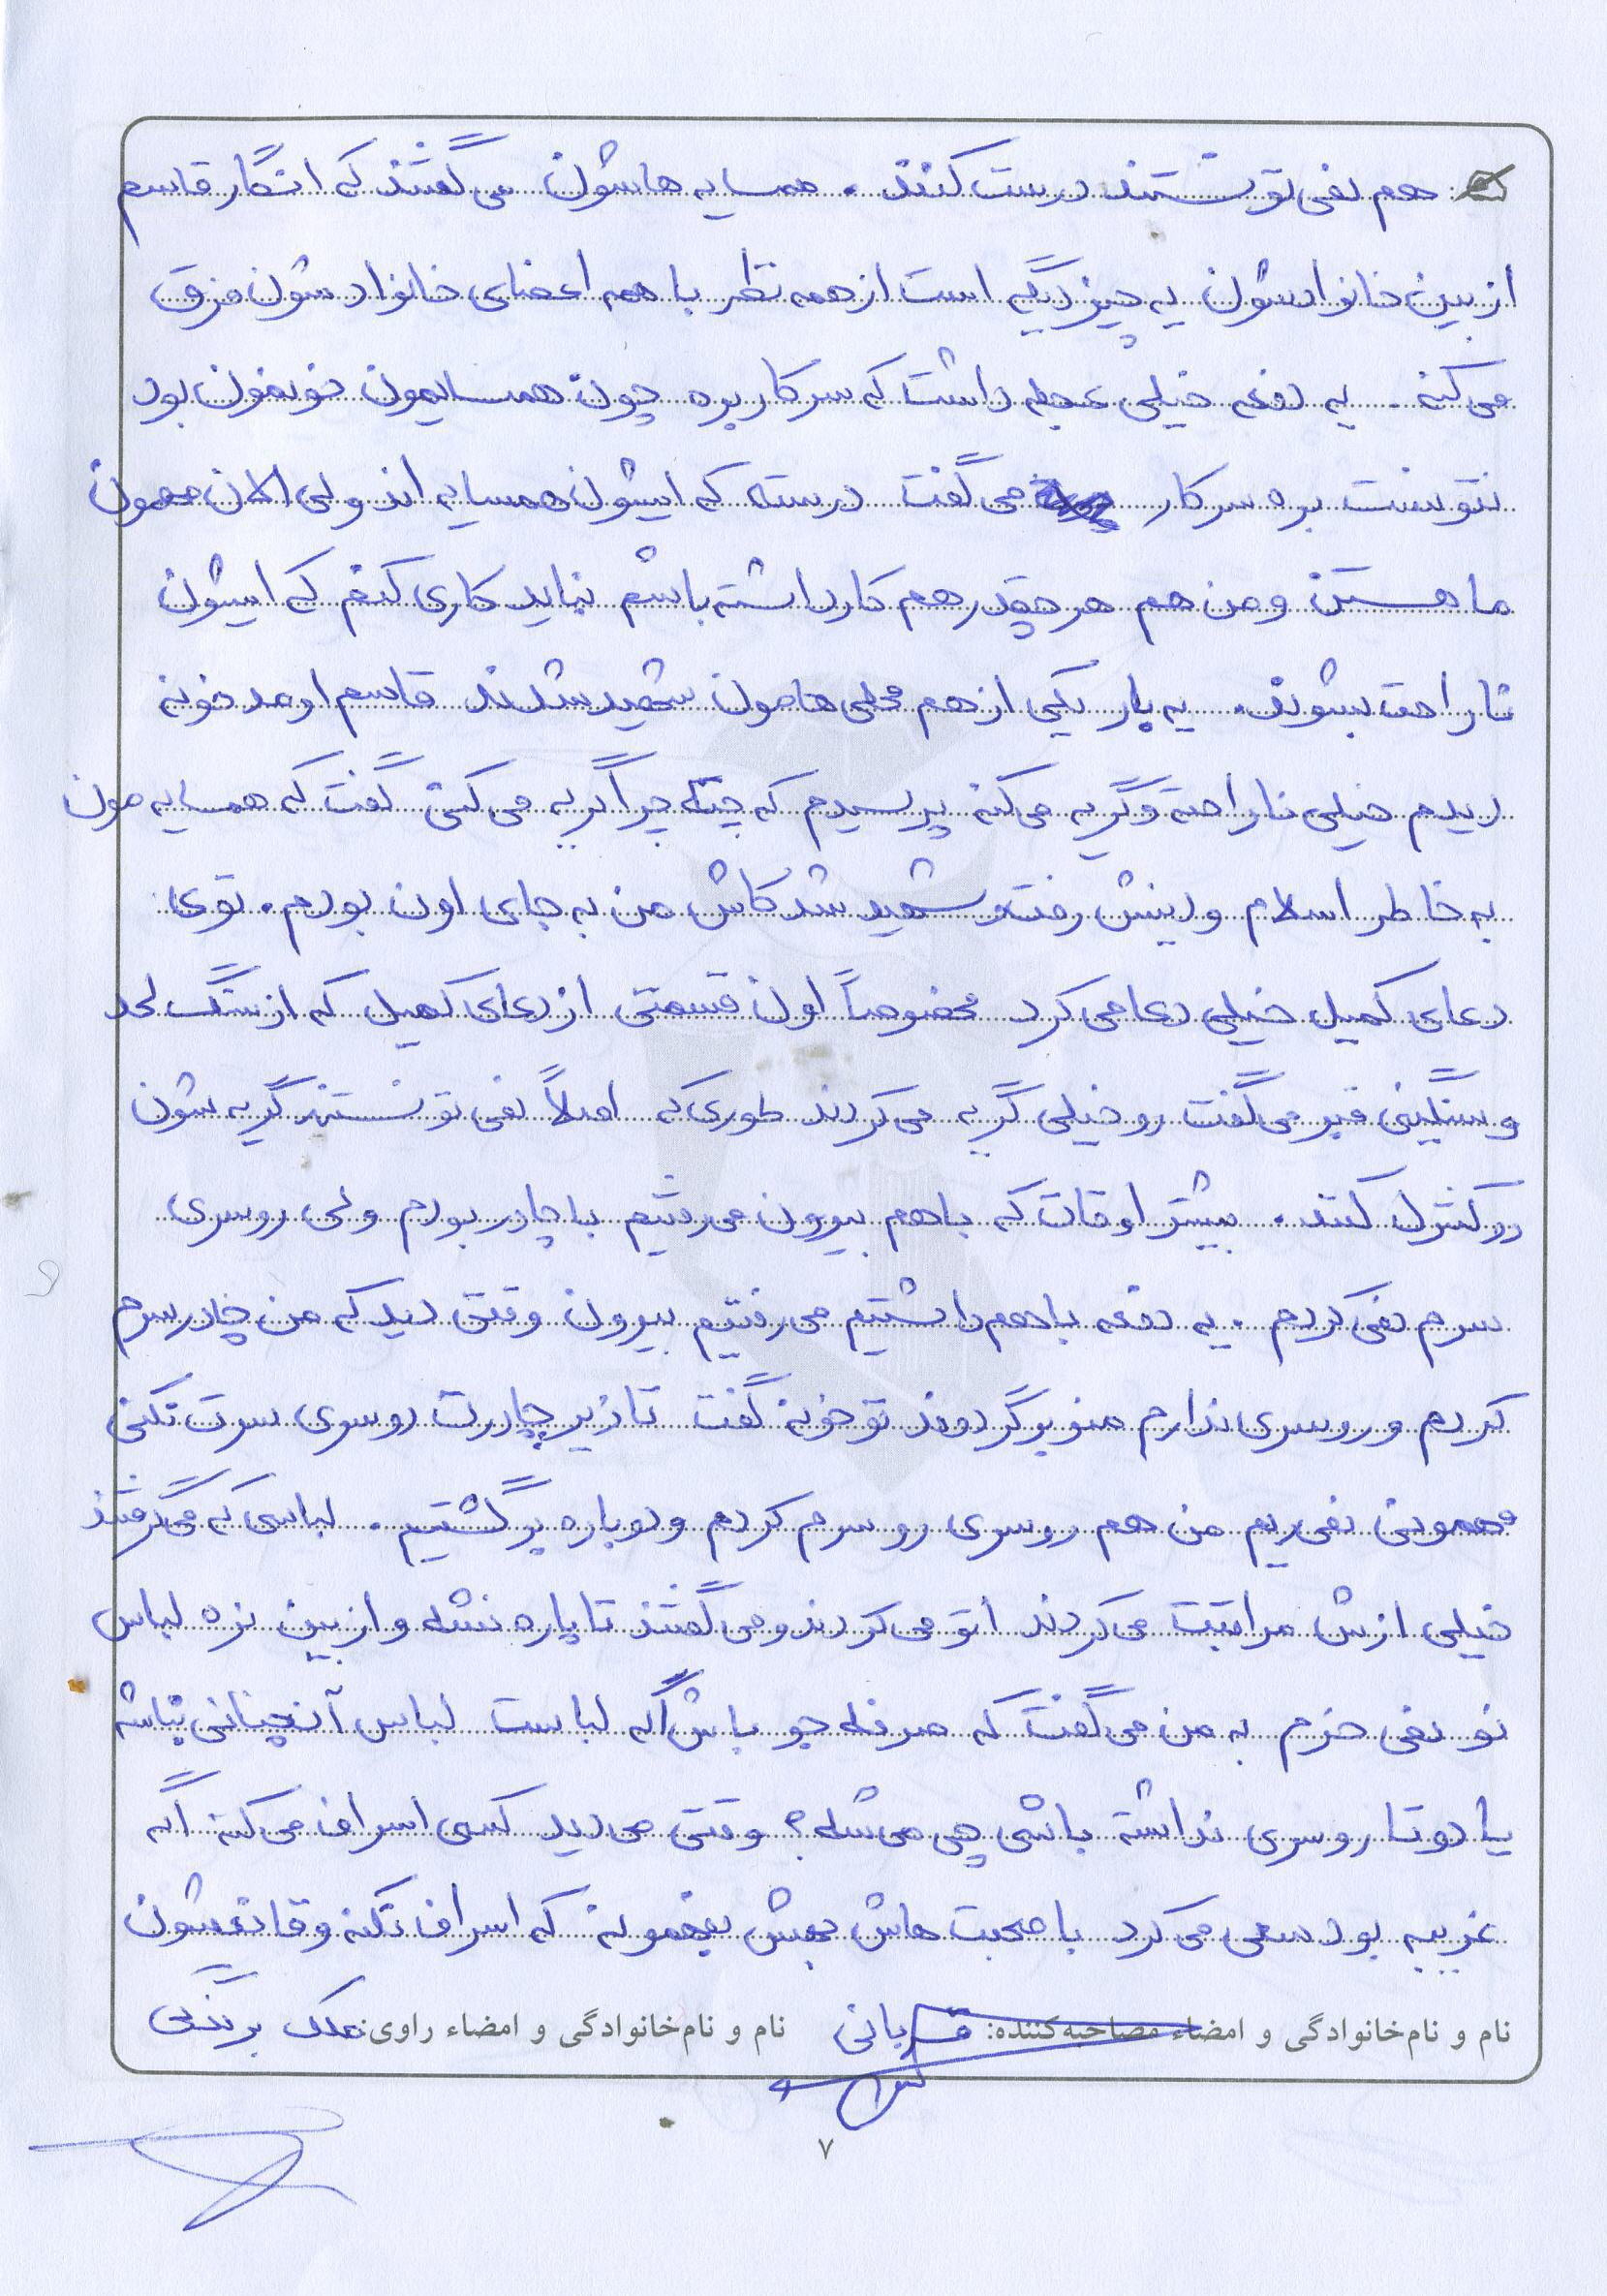 هم نمی تونستند درست کنند . همسایه هاشون می گفتند که انگار قاسم
از بین خانوادشون یه چیز دیگه است از همه نظر با همه اعضای خانوادشون فرق
می کنه . یه دفعه خیلی عجله داشت که سرکار بره چون همسایمون خونمون بود
نتونست بره سرکار می گفت درسته که ایشون همسایه اند ولی الان مهمون
ما هستن و من هم هر چقدر هم کار داشته باشم نباید کاری کنم که ایشون
ناراحت بشوند . یه بار یکی از هم محلی هامون شهید شدند قاسم اومد خونه
دیدم خیلی ناراحته و گریه می کنه پرسیدم که چته چرا گریه می کنی گفت که همسایه مون
به خاطر اسلام و دینش رفته و شهید شد کاش من به جای اون بودم . توی
دعای کمیل خیلی دعا می کرد مخصوصاً اون قسمتی از دعای کمیل که از سنگ لحد
و سنگینی قبر می گفت رو خیلی گریه می کردند طوری که اصلاً نمی تونستند گریه شون
رو کنترل کنند . بیشتر اوقات که با هم بیرون می رفتیم با چادر بودم ولی روسری
سرم نمی کردم . یه دفعه با هم داشتیم می رفتیم بیرون وقتی دید که من چادر سرم
کردم و روسری ندارم منو برگردوند تو خونه گفت تا زیر چادرت روسری سرت نکنی
مهمونی نمی ریم من هم روسری رو سرم کردم و دوباره برگشتیم . لباسی که می گرفتند
خیلی ازش مراقبت می کردند اتو می کردند و می گفتند تا پاره نشه و از بین نره لباس
نو نمی خرم به من می گفت که صرفه جو باش اگه لباست لباس آنچنانی نباشه
یا دو تا روسری نداشته باشی چی می شه ؟ وقتی می دید کسی اسراف می کنه اگه
غریبه بود سعی می کرد با صحبت هاش بهش بفهمونه که اسراف نکنه و قانعشون
نام و نام خانوادگی و امضاء مصاحبه کننده: قربانی نام و نام خانوادگی و امضاء راوی: ملک برنگی
۷